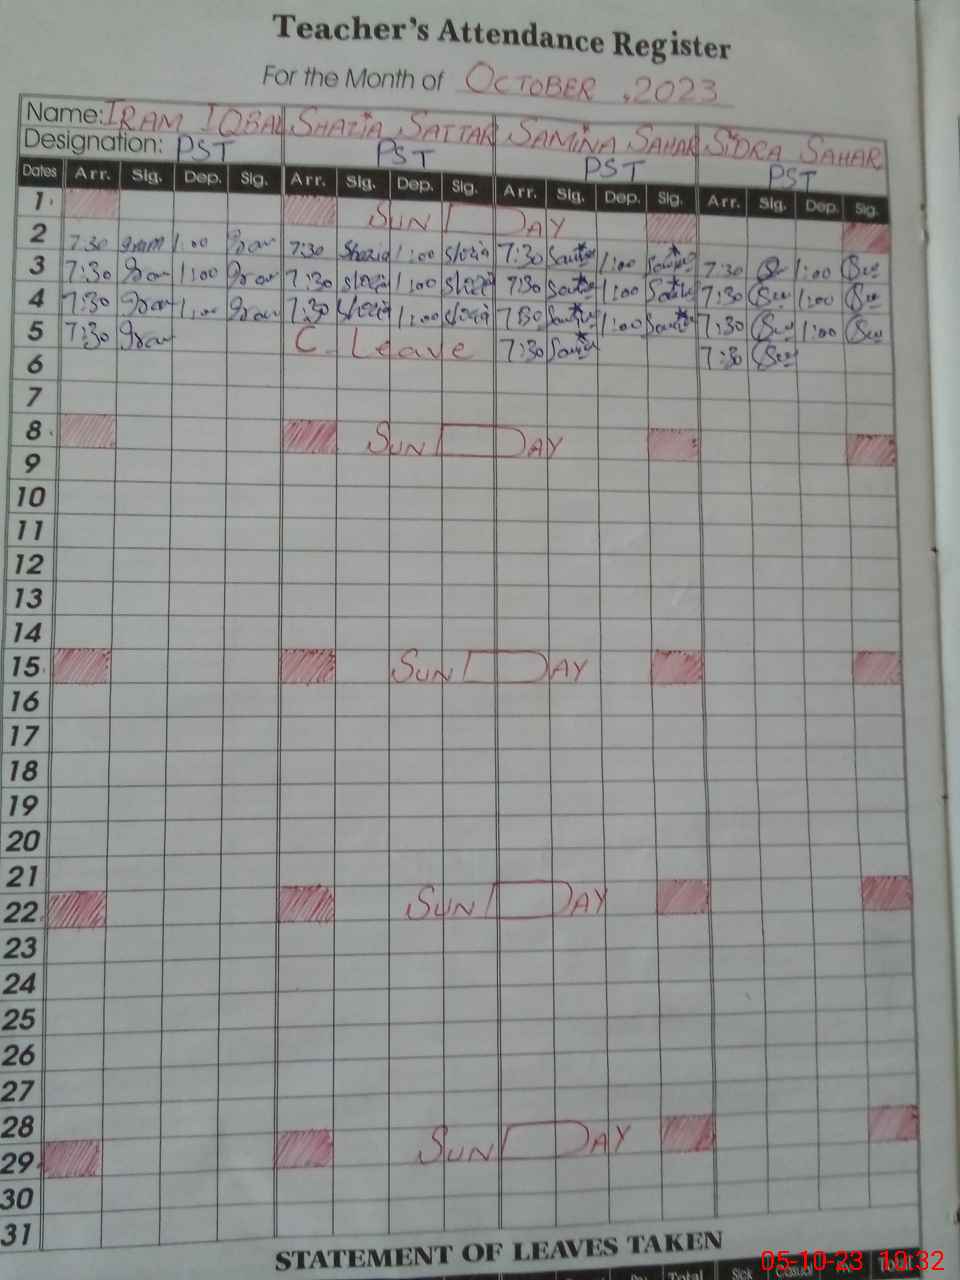 Teacher's Attendance Register
For the Month of OCTOBER, 2023
Name: IRAM IQBAL SHAZIA SATTAR SAMINA SAHAR SIDRA SAHAR
Designation: PST PST PST PST
Dates Arr. Sig. Dep. Sig. Arr. Sig. Dep. Sig. Arr. Sig. Dep. Sig. Arr. Sig. Dep. Sig.
1 SUN DAY
2 7:30 Iram 1:00 Iram 7:30 Shazia 1:00 Shazia 7:30 1:00 7:30 1:00
3 7:30 Iram 1:00 Iram 7:30 Shazia 1:00 Shazia 7:30 1:00 7:30 1:00
4 7:30 Iram 1:00 Iram 7:30 Shazia 1:00 Shazia 7:30 1:00 7:30 1:00
5 7:30 Iram C. Leave 7:30 7:30
6
7
8 SUN DAY
9
10
11
12
13
14
15 SUN DAY
16
17
18
19
20
21
22 SUN DAY
23
24
25
26
27
28
29 SUN DAY
30
31
STATEMENT OF LEAVES TAKEN
05-10-23 10:32
Total Sick Casual Total